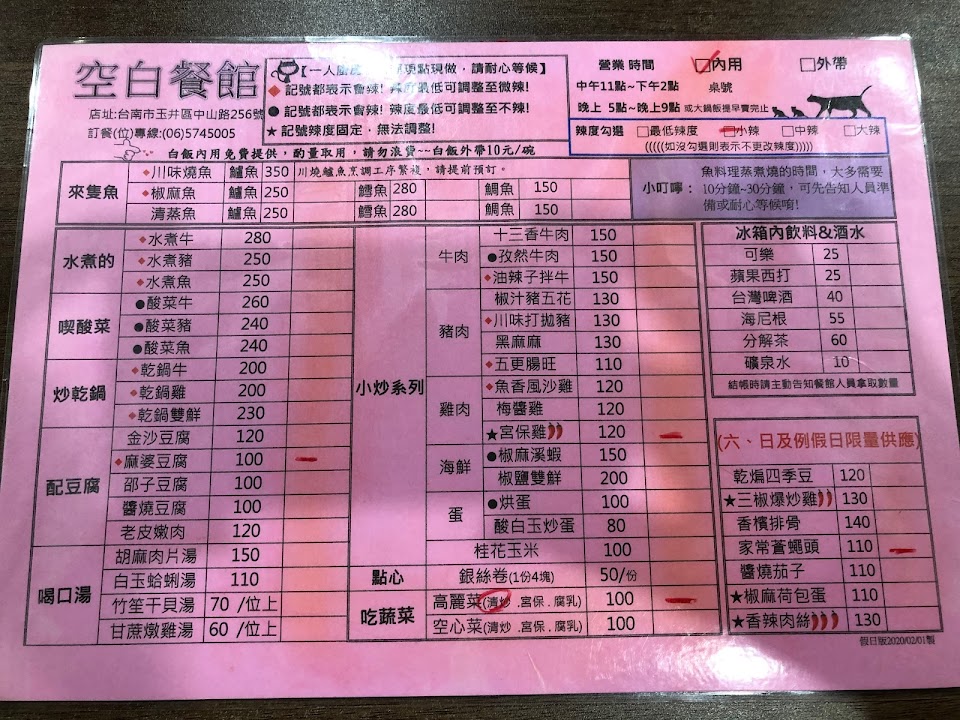 空白餐館
店址:台南市玉井區中山路256號
訂餐(位)專線:(06)5745005
【一人廚 現點現做，請耐心等候】
◆ 記號都表示會辣! 辣度最低可調整至微辣!
● 記號都表示會辣! 辣度最低可調整至不辣!
★ 記號辣度固定，無法調整!
營業時間 □內用 □外帶
中午11點~下午2點 桌號
晚上 5點~晚上9點 或大鍋飯提早賣完止
辣度勾選 □最低辣度 □小辣 □中辣 □大辣
(((((如沒勾選則表示不更改辣度)))))
白飯內用免費提供，酌量取用，請勿浪費~~白飯外帶10元/碗
來隻魚
◆川味燒魚 鱸魚 350 川燒鱸魚烹調工序繁複，請提前預訂。
◆椒麻魚 鱸魚 250 鱈魚 280 鯛魚 150
清蒸魚 鱸魚 250 鱈魚 280 鯛魚 150
小叮嚀：
魚料理蒸煮燒的時間，大多需要
10分鐘~30分鐘，可先告知人員準
備或耐心等候唷!
水煮的
◆水煮牛 280
◆水煮豬 250
◆水煮魚 250
喫酸菜
●酸菜牛 260
●酸菜豬 240
●酸菜魚 240
炒乾鍋
◆乾鍋牛 200
◆乾鍋雞 200
◆乾鍋雙鮮 230
配豆腐
金沙豆腐 120
◆麻婆豆腐 100
邵子豆腐 100
醬燒豆腐 100
老皮嫩肉 120
喝口湯
胡麻肉片湯 150
白玉蛤蜊湯 110
竹笙干貝湯 70 /位上
甘蔗燉雞湯 60 /位上
小炒系列
牛肉
十三香牛肉 150
●孜然牛肉 150
◆油辣子拌牛 150
豬肉
椒汁豬五花 130
◆川味打拋豬 130
黑麻麻 130
◆五更腸旺 110
雞肉
◆魚香風沙雞 120
梅醬雞 120
★宮保雞 120
海鮮
●椒麻溪蝦 150
椒鹽雙鮮 200
蛋
●烘蛋 100
酸白玉炒蛋 80
桂花玉米 100
點心 銀絲卷(1份4塊) 50/份
吃蔬菜
高麗菜(清炒 .宮保 .腐乳) 100
空心菜(清炒 .宮保 .腐乳) 100
冰箱內飲料&酒水
可樂 25
蘋果西打 25
台灣啤酒 40
海尼根 55
分解茶 60
礦泉水 10
結帳時請主動告知餐館人員拿取數量
(六、日及例假日限量供應)
乾煸四季豆 120
★三椒爆炒雞 130
香檳排骨 140
家常蒼蠅頭 110
醬燒茄子 110
★椒麻荷包蛋 110
★香辣肉絲 130
假日版2020/02/01製